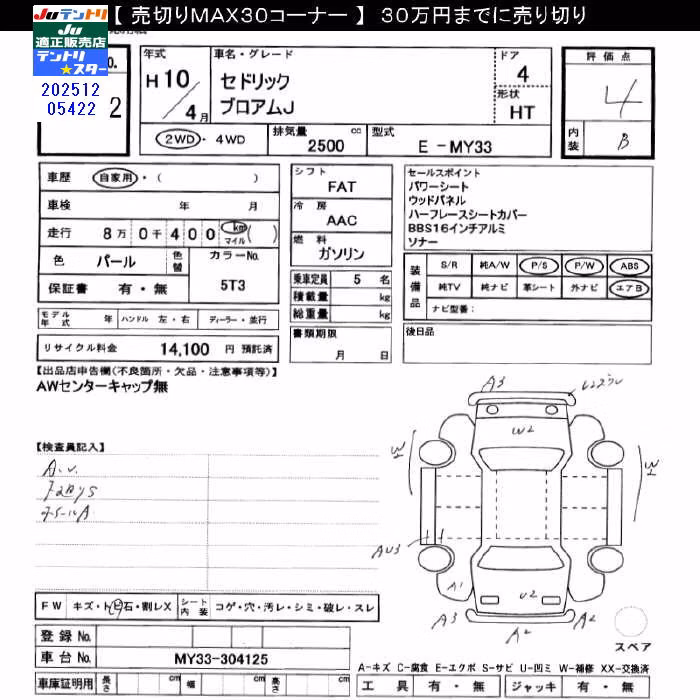 Juテントリ
【 売切りMAX30コーナー 】 30万円までに売り切り
Ju
適正販売店
テントリ
★スター
202512
05422
No.
2
年式
H 10 / 4 月
車名・グレード
セドリック
ブロアムJ
ドア
4
形状
HT
評価点
4
内装
B
2WD ・ 4WD
排気量
2500 cc
型式
E － MY33
車歴 自家用・( )
車検 年 月
走行 8万 0千 4 0 0 km マイル ( )
色 パール 色替
カラーNo.
5T3
保証書 有・無
モデル年式 年 ハンドル 左・右 ディーラー・並行
リサイクル料金 14,100 円 預託済
シフト
FAT
冷房
AAC
燃料
ガソリン
乗車定員 5 名
積載量 kg
総重量 kg
書類期限
月 日
セールスポイント
パワーシート
ウッドパネル
ハーフレースシートカバー
BBS16インチアルミ
ソナー
装備品
S/R 純A/W P/S P/W ABS
純TV 純ナビ 革シート 外ナビ エアB
ナビ型番:
後日品
【出品店申告欄(不良箇所・欠品・注意事項等)】
AWセンターキャップ無
【検査員記入】
A3
W2
A1
U2
A3
A2
A2
スペア
FW キズ・トビ石・割レX
シート内装 コゲ・穴・汚レ・シミ・破レ・スレ
登録 No.
車台 No. MY33-304125
車庫証明用 長さ cm 幅 cm 高さ cm
A-キズ C-腐食 E-エクボ S-サビ U-凹ミ W-補修 XX-交換済
工具 有・無 ジャッキ 有・無